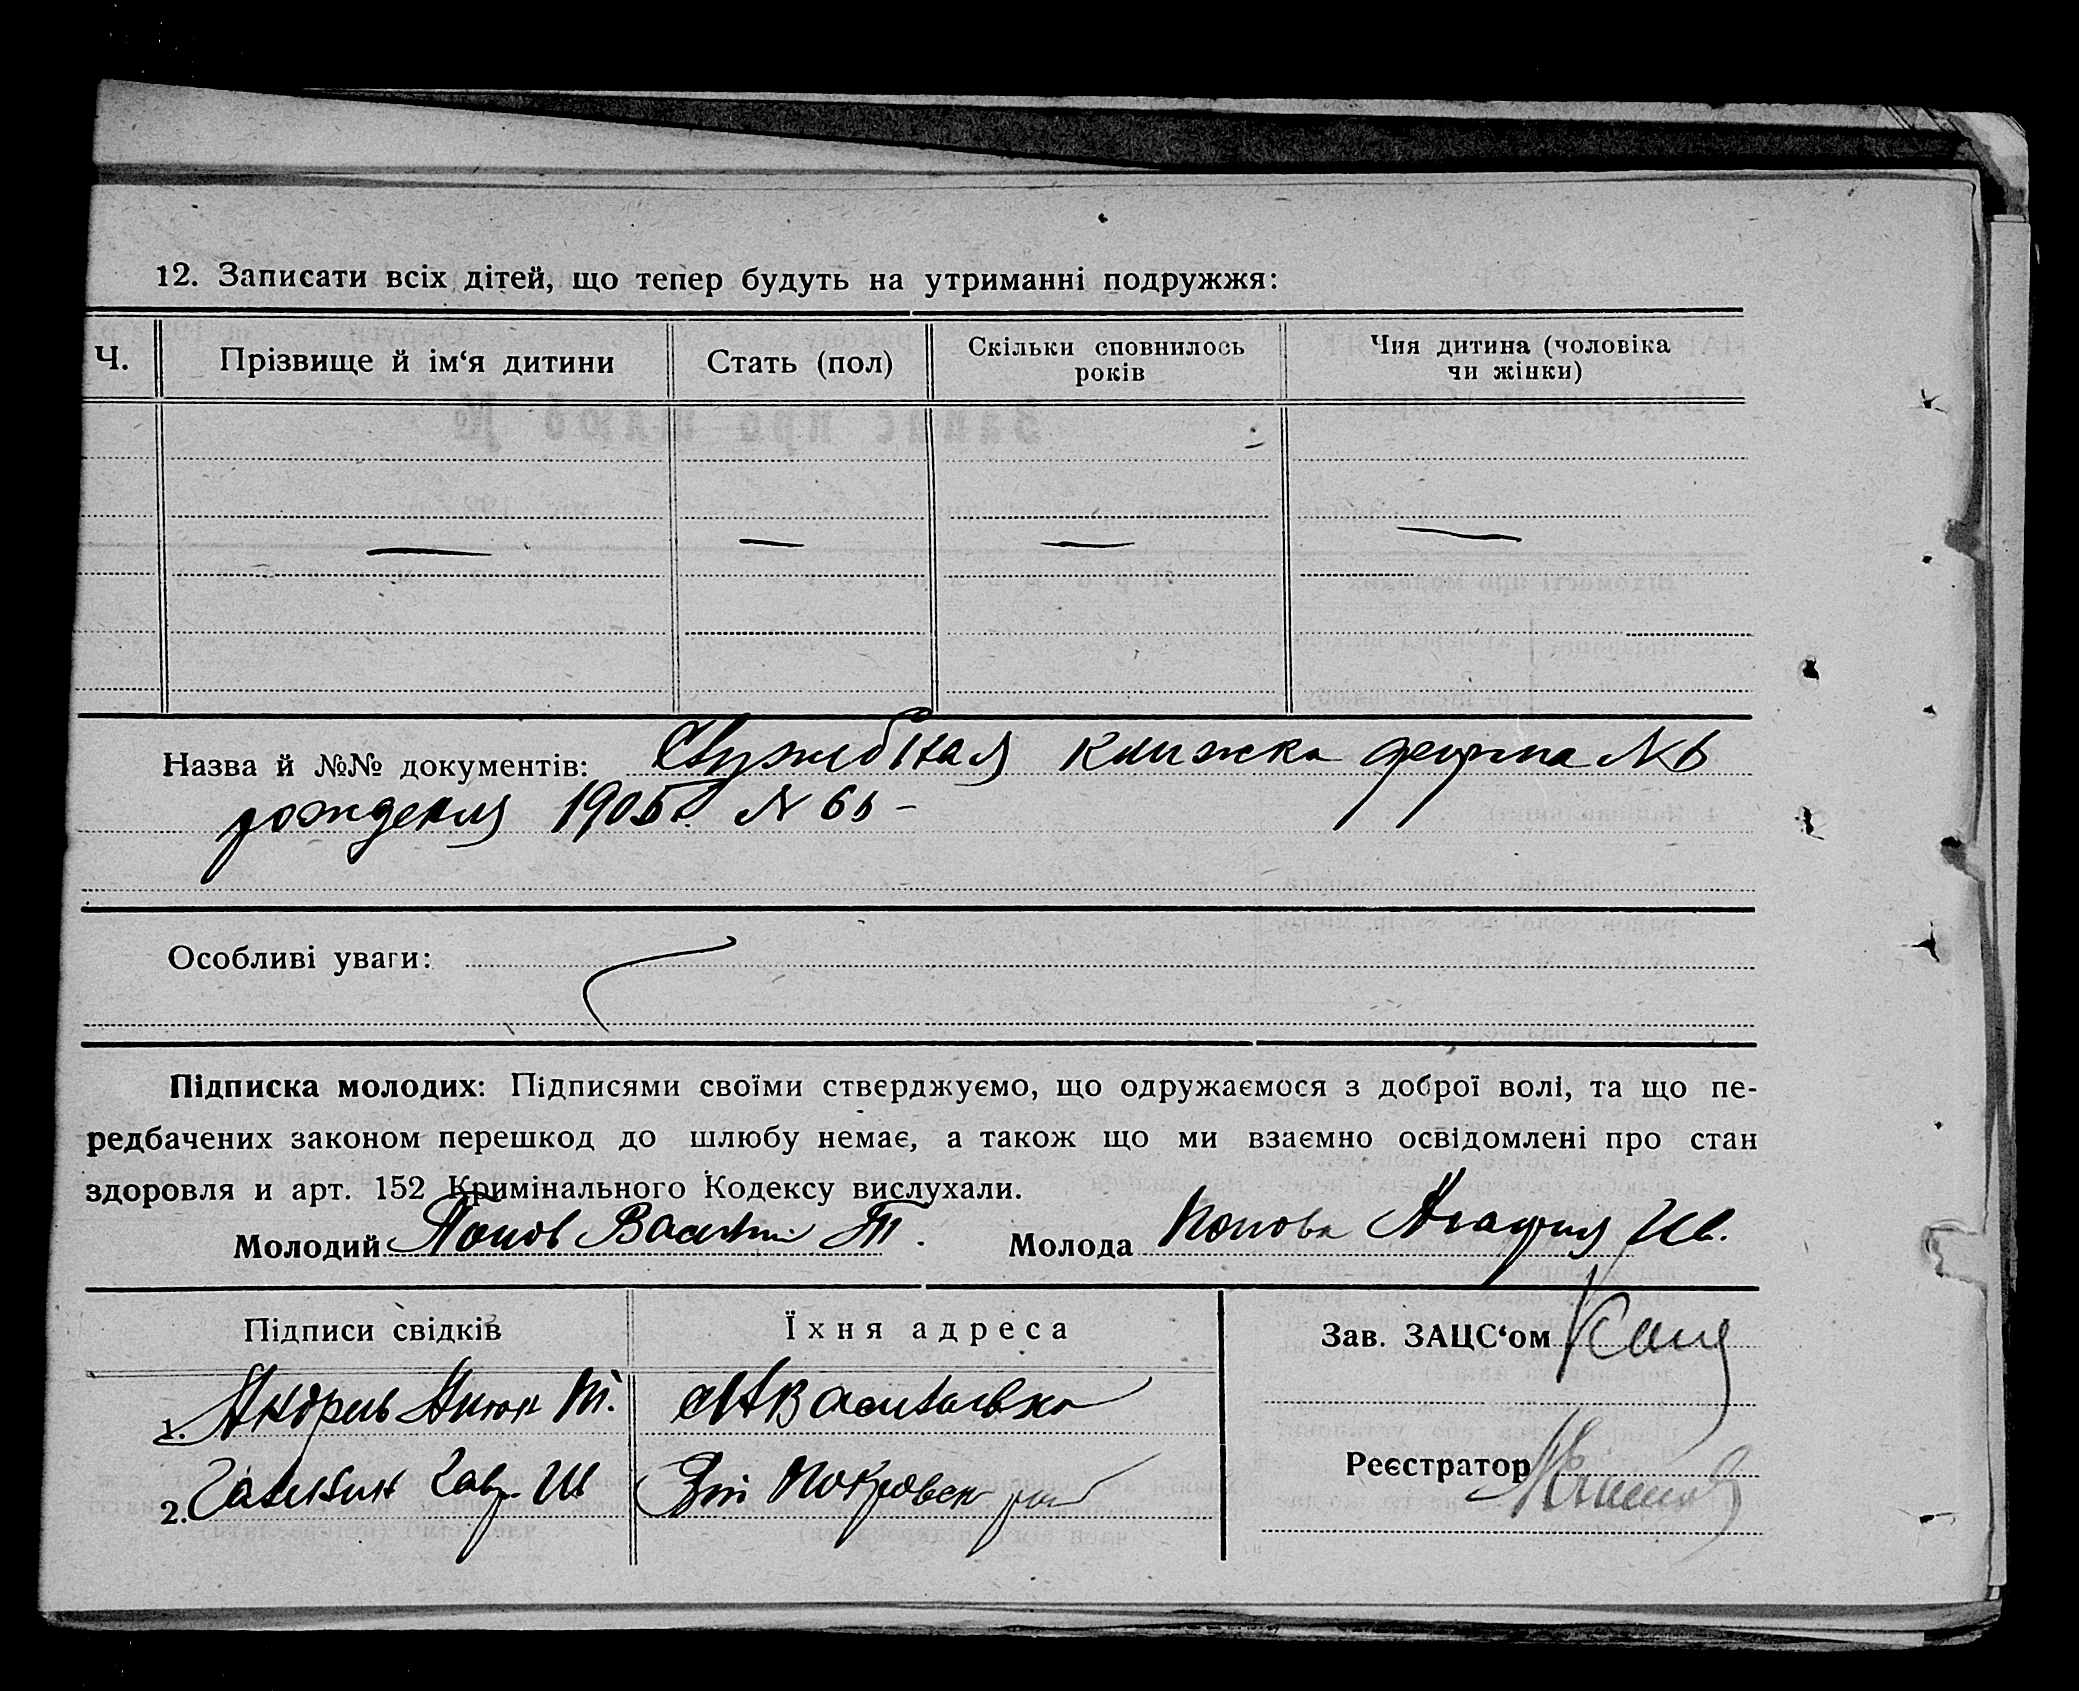 12. Записати всіх дітей, що тепер будуть на утриманні подружжя:
Ч.
Прізвище й ім‘я дитини
Стать (пол)
Скільки сповнилось років
Чия дитина (чоловіка чи жінки)
Назва й №№ документів: книжка форма №
рождения 1905 №
Особливі уваги:
Підписка молодих: Підписями своїми стверджуємо, що одружаємося з доброї волі, та що пе-
редбачених законом перешкод до шлюбу немає, а також що ми взаємно освідомлені про стан
здоровля и арт. 152 Кримінального Кодексу вислухали.
Молодий Попов Василий Т.
Молода Попова Агафия Ив.
Підписи свідків
Їхня адреса
Зав. ЗАЦС‘ом
1.
Васильевка
Реєстратор
2. Галикин Гавр.
Покровск